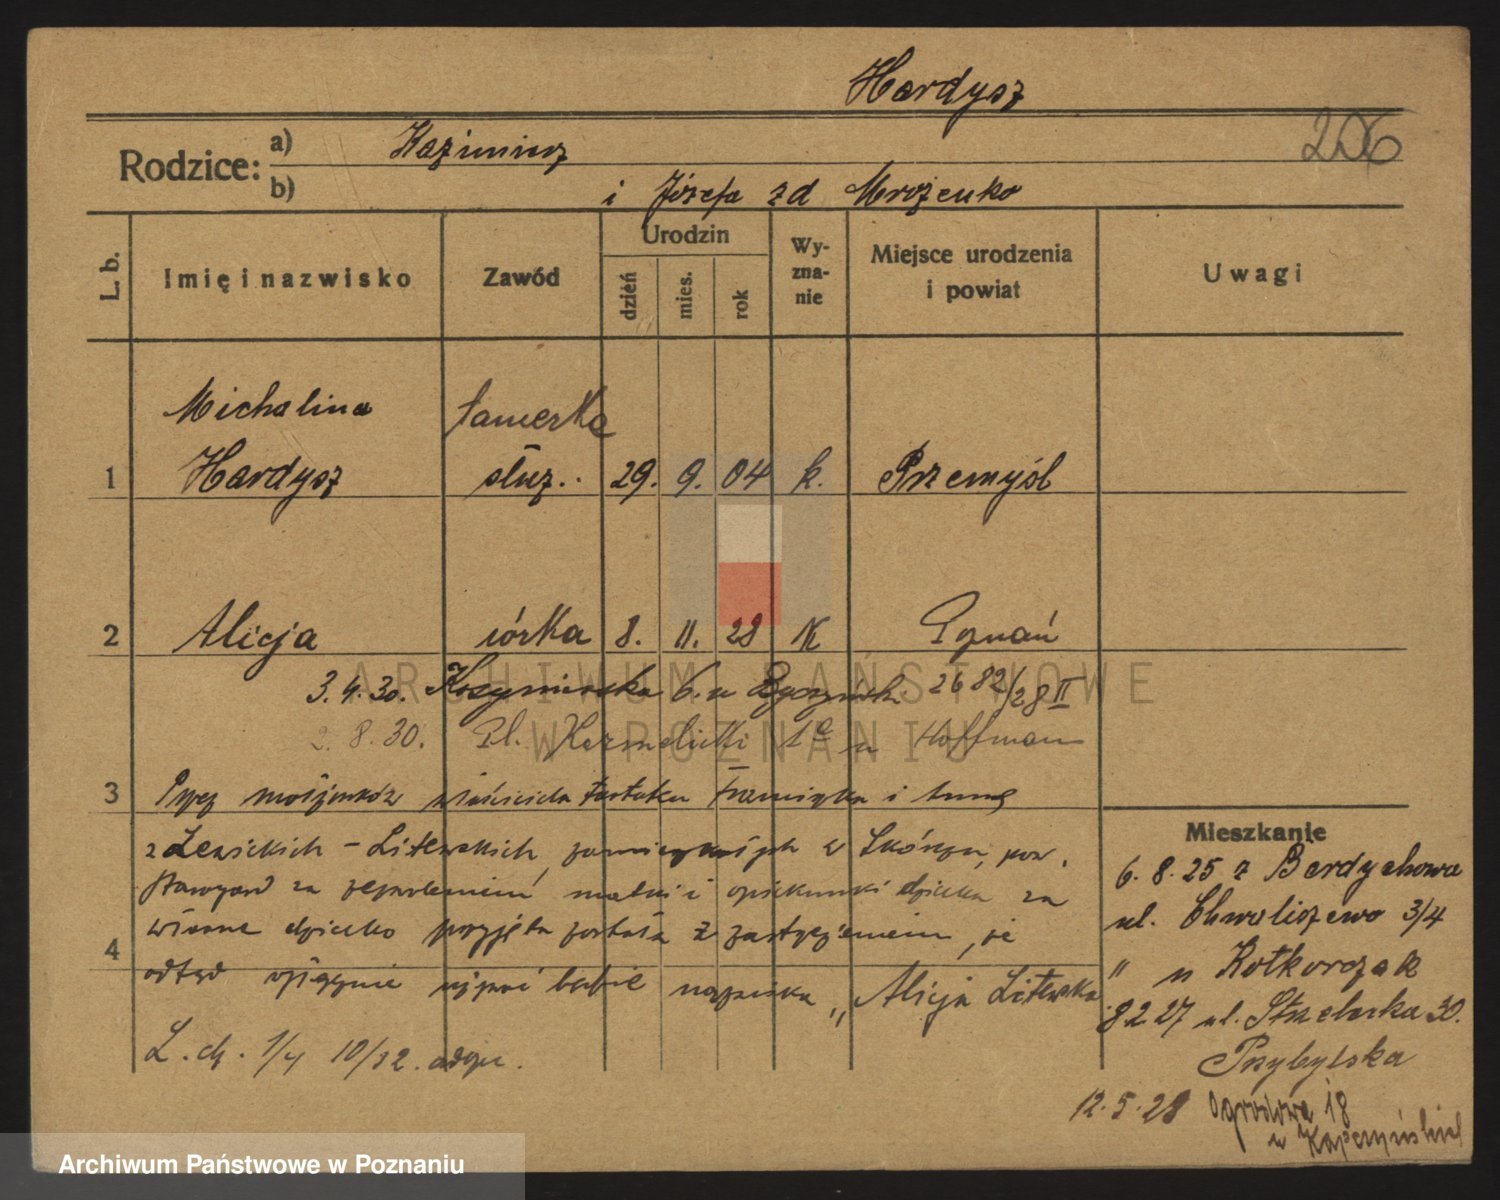 Hardysz
206
Rodzice: a) Kazimierz
b) i Józefa zd Mrozenko
L. b.
Imię i nazwisko
Zawód
Urodzin
dzień
mies.
rok
Wy-
zna-
nie
Miejsce urodzenia
i powiat
Uwagi
Michalina
1 Hardysz służ. 29. 9. 04 k. Przemyśl
2 Alicja córka 8. 11. 28 K Poznań
3.4.30. 6. u 2682/28 II
2.8.30. Pl. Karmelicki 1e u Hoffmann
3 Przez właściciela tartaku Franciszka i Annę
z Lewickich - Litewskich, w Skórczu, pow.
za zezwoleniem matki i opiekunki dziecka za
własne dziecko przyjęta została z zastrzeżeniem, że
4
odtąd używać będzie nazwiska "Alicja Litewska
L. dz. 1/4 10/32.
Mieszkanie
6.8.25 z Berdychowa
ul. Chwaliszewo 3/4
" u Kotkorczak
8.2.27 ul. Strzelecka 30.
Przybylska
12.5.28 Ogrodowa 18
u
ARCHIWUM PAŃSTWOWE
W POZNANIU
Archiwum Państwowe w Poznaniu